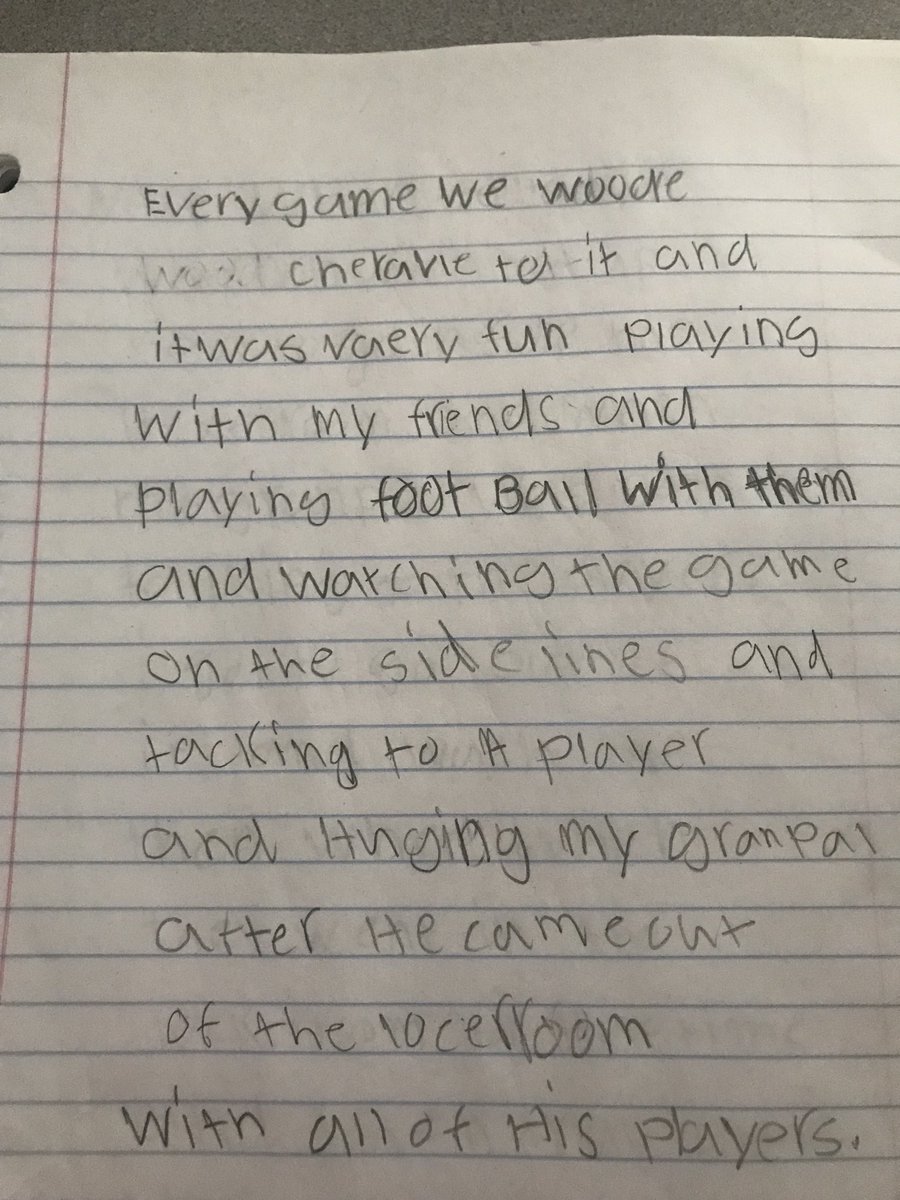 Every game we woode
cheravie to it and
it was vaery fun playing
with my friends and
playing foot Ball with them
and watching the game
on the side lines and
tacking to A player
and Huging my granpa
after He came out
of the locerroom
with all of His players.